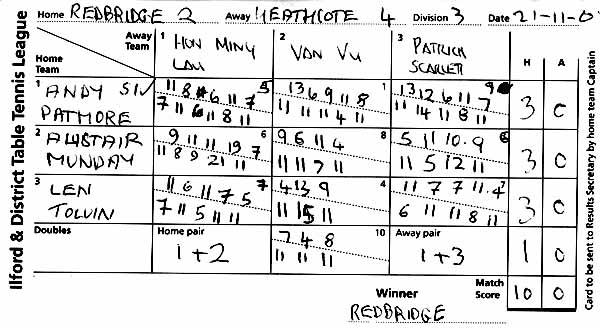 Ilford & District Table Tennis League
Home REDBRIDGE 2 Away HEATHCOTE 4 Division 3 Date 21-11-0
Away Team 1 HON MING LAU 2 VAN VU 3 PATRICK SCARLETT H A
Home Team
1 ANDY SIV PATMORE 5 1 9 3 0
11 8 11 6 11 7 13 6 9 11 13 12 6 11 7
7 11 6 11 8 11 11 11 11 4 11 11 14 11 8 11
2 ALISTAIR MUNDAY 6 8 3 0
9 11 11 19 7 9 6 11 4 5 11 10 9
11 8 9 21 11 11 11 7 11 11 5 12 11
3 LEN TOLVIN 7 4 3 0
11 6 11 7 5 4 13 9 11 7 7 11 4
7 11 5 11 11 11 15 11 6 11 11 8 11
Doubles Home pair 10 Away pair
1+2 7 4 8 1+3 1 0
11 11 11
Winner Match Score 10 0
REDBRIDGE
Card to be sent to Results Secretary by home team Captain